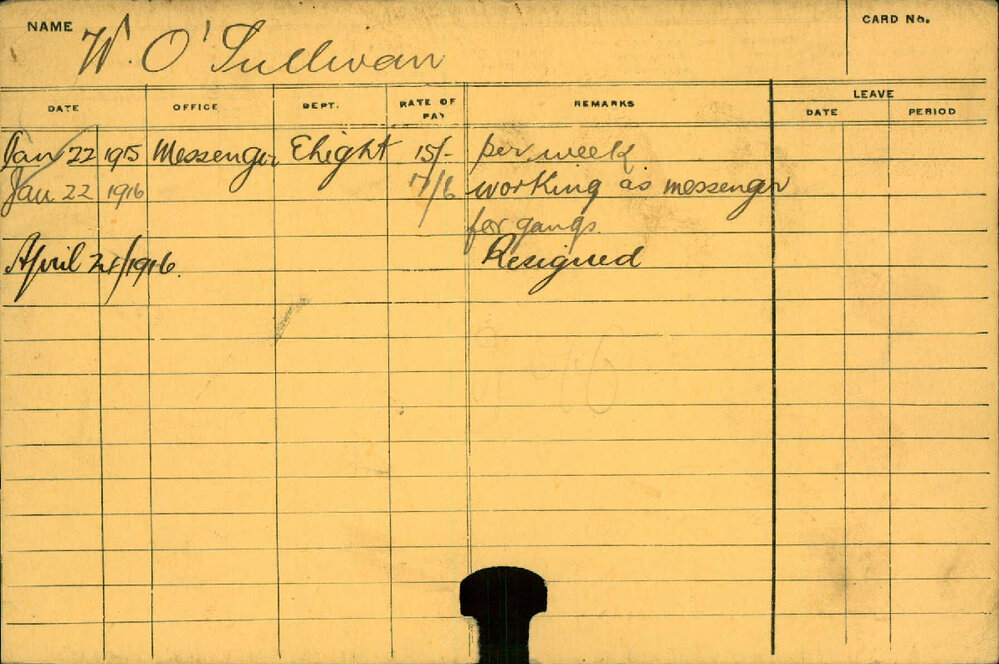 NAME W. O'Sullivan CARD No.
DATE OFFICE DEPT. RATE OF PAY REMARKS LEAVE
DATE PERIOD
Jan 22 1915 Messenger Elight 15/- per week
Jan 22 1916 17/6 working as messenger
for gangs.
April 24/1916. Resigned